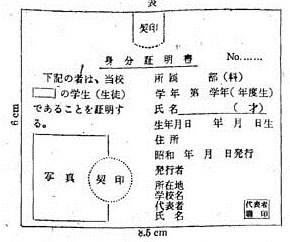 表
契印
身分証明書
No.......
下記の者は、当校
の学生（生徒）
であることを証明す
る。
写真
契印
所属 部（科）
学年 第 学年（年度生）
氏名 （ 才）
生年月日 年 月 日生
住所
昭和 年 月 日発行
発行者
所在地
学校名
代表者
氏名
代表者
職印
6 cm
8.5 cm